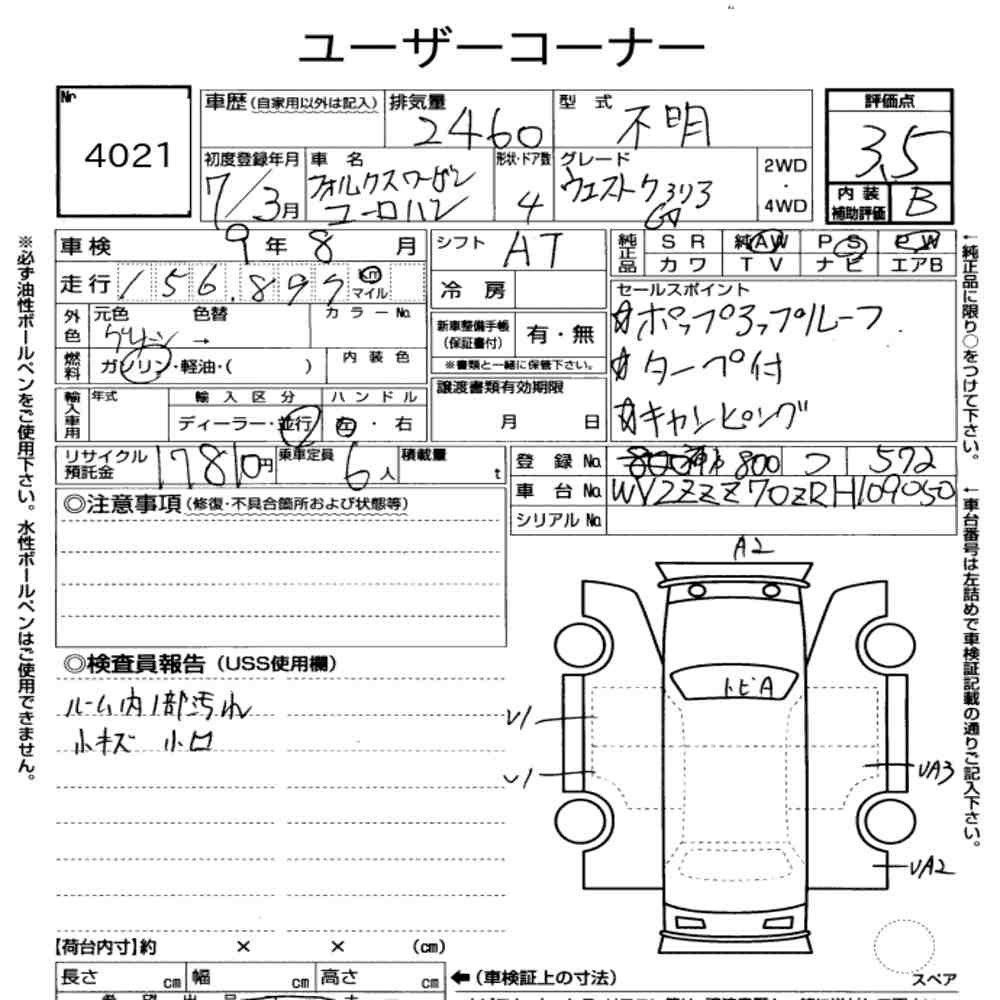 ユーザーコーナー
Nr 4021
車歴(自家用以外は記入) 排気量 2460 型式 不明
初度登録年月 7/3月 車名 フォルクスワーゲン ユーロバン 形状・ドア数 4 グレード 2WD・4WD
評価点 3.5
内装補助評価 B
車検 9年8月 シフト AT
走行 156,899 km マイル
冷房
純正品 SR 純AW PS PW
カワ TV ナビ エアB
セールスポイント
ポップアップルーフ
ターペ付
キャンピング
外色 元色 グリーン → 色替 カラーNo.
燃料 ガソリン・軽油・( ) 内装色
新車整備手帳(保証書付) 有・無
※書類と一緒に保管下さい。
譲渡書類有効期限 月 日
輸入車用 年式 輸入区分 ディーラー・並行 ハンドル 左・右
リサイクル預託金 17810円 乗車定員 6人 積載量 t
登録No. 800 つ 572
車台No. WV2ZZZ70ZRH109050
シリアルNo.
◎注意事項(修復・不具合箇所および状態等)
◎検査員報告(USS使用欄)
ルーム内1部汚れ
小キズ 小凹
A2
トビA
U1
U1
UA3
UA2
スペア
【荷台内寸】約 × × (cm)
長さ cm 幅 cm 高さ cm ←(車検証上の寸法)
※必ず油性ボールペンをご使用下さい。水性ボールペンはご使用できません。
←純正品に限り○をつけて下さい。
←車台番号は左詰めで車検証記載の通りご記入下さい。